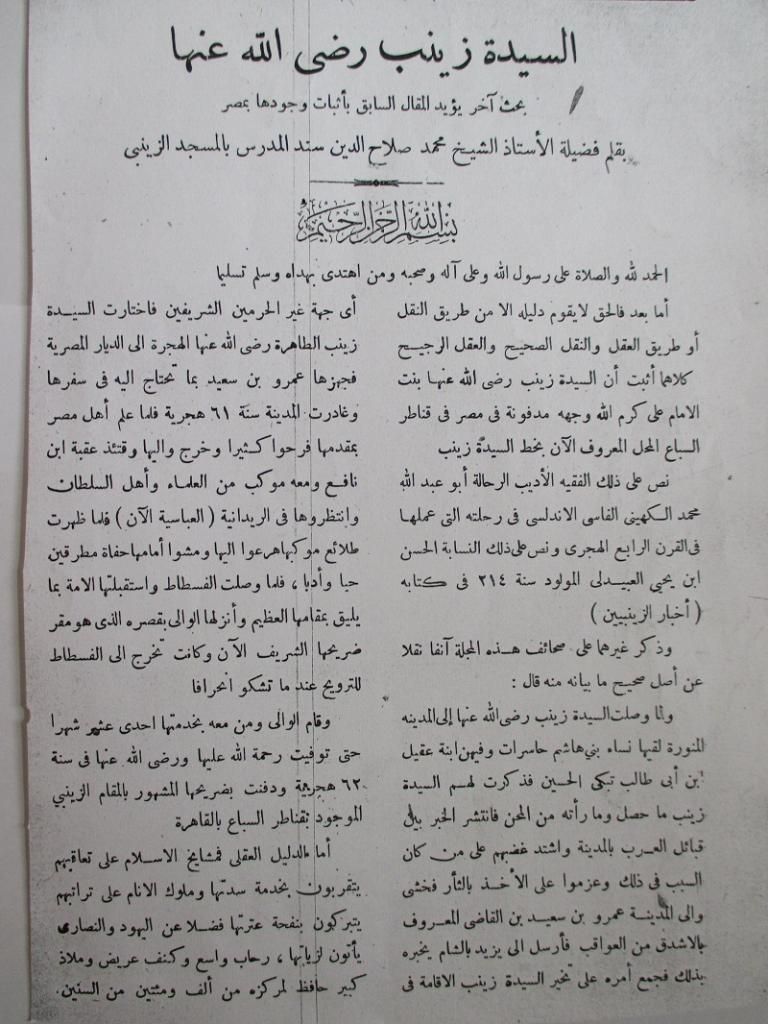 السيدة زينب رضى الله عنها
بحث آخر يؤيد المقال السابق بأثبات وجودها بمصر
بقلم فضيلة الأستاذ الشيخ محمد صلاح الدين سند المدرس بالمسجد الزينبى
بسم الله الرحمن الرحيم
الحمد لله والصلاة على رسول الله وعلى آله وصحبه ومن اهتدى بهداه وسلم تسليما
أما بعد فالحق لايقوم دليله الا من طريق النقل
أو طريق العقل والنقل الصحيح والعقل الرجيح
كلاهما أثبت أن السيدة زينب رضى الله عنها بنت
الامام على كرم الله وجهه مدفونة فى مصر فى قناطر
السباع المحل المعروف الآن بخط السيدة زينب
نص على ذلك الفقيه الأديب الرحالة أبو عبد الله
محمد الكهينى الفاسى الاندلسى فى رحلته التى عملها
فى القرن الرابع الهجرى ونص على ذلك النسابة الحسن
ابن يحيى العبيدلى المولود سنة ٢١٤ فى كتابه
( أخبار الزينبيين )
وذكر غيرهما على صحائف هذه المجلة آنفا نقلا
عن أصل صحيح ما بيانه منه قال :
ولما وصلت السيدة زينب رضى الله عنها إلى المدينه
المنورة لقيها نساء بنى هاشم حاسرات وفيهن ابنة عقيل
ابن أبى طالب تبكى الحسين فذكرت لهم السيدة
زينب ما حصل وما رأته من المحن فانتشر الخبر بين
قبائل العرب بالمدينة واشتد غضبهم على من كان
السبب فى ذلك وعزموا على الأخذ بالثأر فخشى
والى المدينة عمرو بن سعيد بن القاضى المعروف
بالاشدق من العواقب فأرسل الى يزيد بالشام يخبره
بذلك فجمع أمره على تخير السيدة زينب الاقامة فى
أى جهة غير الحرمين الشريفين فاختارت السيدة
زينب الطاهرة رضى الله عنها الهجرة الى الديار المصرية
فجهزها عمرو بن سعيد بما تحتاج اليه فى سفرها
وغادرت المدينة سنة ٦١ هجرية فلما علم أهل مصر
بمقدمها فرحوا كثيرا وخرج واليها وقتئذ عقبة ابن
نافع ومعه موكب من العلماء وأهل السلطان
وانتظروها فى الريدانية ( العباسية الآن ) فلما ظهرت
طلائع موكبها هرعوا اليها ومشوا أمامها حفاة مطرقين
حبا وأدبا ، فلما وصلت الفسطاط واستقبلتها الامة بما
يليق بمقامها العظيم وأنزلها الوالى بقصره الذى هو مقر
ضريحها الشريف الآن وكانت تخرج الى الفسطاط
للترويح عند ما تشكو انحرافا
وقام الوالى ومن معه بخدمتها احدى عشر شهرا
حتى توفيت رحمة الله عليها ورضى الله عنها فى سنة
٦٢ هجرية ودفنت بضريحها المشهور بالمقام الزينبي
الموجود بقناطر السباع بالقاهرة
أما الدليل العقلى فمشايخ الاسلام على تعاقبهم
يتقربون بخدمة سدتها وملوك الانام على تراتبهم
يتبركون بنفحة عترتها فضلا عن اليهود والنصارى
يأتون لزيارتها ، رحاب واسع وكنف عريض وملاذ
كبير حافظ لمركزه من ألف ومئتين من السنين .